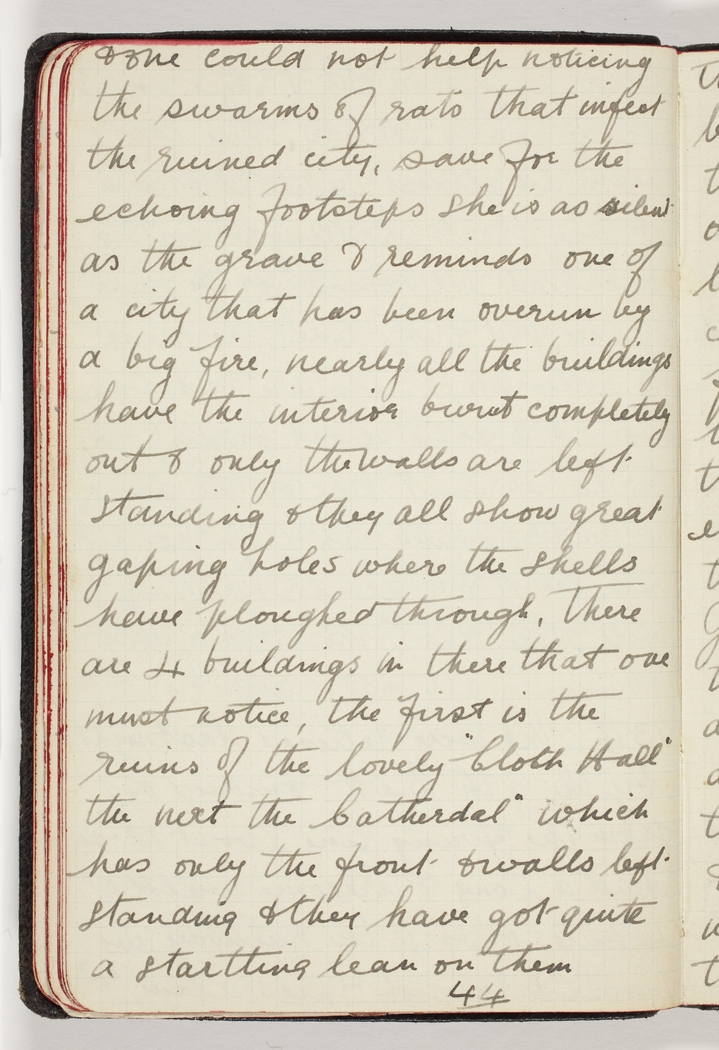 & one could not help noticing
the swarms of rats that infect
the ruined city, save for the
echoing footsteps she is as silent
as the grave & reminds one of
a city that has been overun by
a big fire, nearly all the buildings
have the interior burnt completely
out & only the walls are left
standing & they all show great
gaping holes where the shells
have ploughed through, There
are 4 buildings in there that one
must notice, the first is the
ruins of the lovely "Cloth Hall"
the next the Catherdal" which
has only the front & walls left
standing & they have got quite
a startting lean on them
44